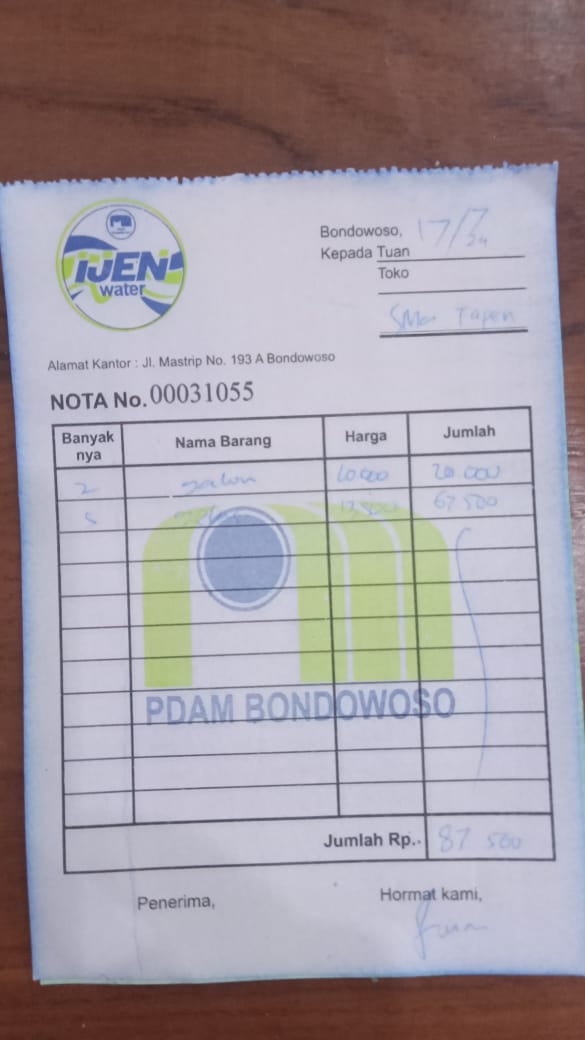 IJEN
water
Bondowoso, 17/7 24
Kepada Tuan
Toko
SMA Tapen
Alamat Kantor : Jl. Mastrip No. 193 A Bondowoso
NOTA No. 00031055
Banyak nya Nama Barang Harga Jumlah
2 galon 10 000 20 000
5 67 500
PDAM BONDOWOSO
Jumlah Rp.- 87 500
Penerima, Hormat kami,